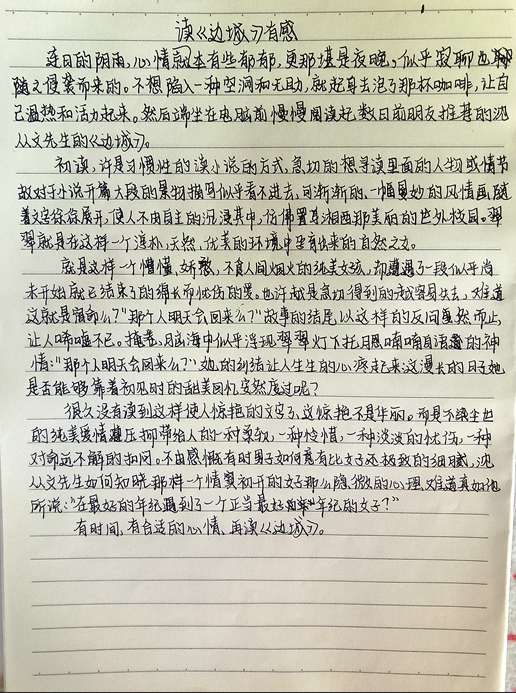 读《边城》有感
连日的阴雨，心情就本有些郁郁，更那堪是夜晚。似乎寂聊也
随之侵袭而来的。不想陷入一种空洞和无助，就起身去泡了那杯咖啡，让自
己温热和活力起来。然后端坐在电脑前慢慢阅读起数日前朋友推荐的沈
从文先生的《边城》。
初读，许是习惯性的读小说的方式，急切的想寻读里面的人物或情节
故对于小说开篇大段的景物描写似乎看不进去，可渐渐的，一幅曼妙的风情画随
着文字徐徐展开，使人不由自主的沉浸其中，仿佛置身湘西那美丽的世外桃园。翠
翠就是在这样一个淳朴，天然，优美的环境中孕育出来的自然之女。
就是这样一个懵懂，娇憨，不食人间烟火的纯美女孩，却遭遇了一段似乎尚
未开始就已结束了的绵长而忧伤的爱。也许越是急切得到的越容易失去，难道
这就是宿命么？"那个人明天会回来么？"故事的结尾，以这样的反问戛然而止，
让人唏嘘不已。掩卷，脑海中似乎浮现翠翠灯下托思喃喃自语的神
情："那个人明天会回来么？"她的纠结让人生生的心疼起来，这漫长的日子她
是否能够靠着初见时的甜美回忆安然度过呢？
很久没有读到这样使人惊艳的文字了，这惊艳不是华丽。而是不绝尘世
的纯美爱情凄压抑带给人的一种萦绕，一种怜惜，一种淡淡的忧伤，一种
对命运不解的叩问。不由感慨有时男子如何竟有比女子还极致的细腻，沈
从文先生如何知晓那样一个情窦初开的女子那么隐微的心理，难道真如他
所说："在最好的年纪遇到了一个正当最好年纪的女子？"
有时间，有合适的心情，再读《边城》。